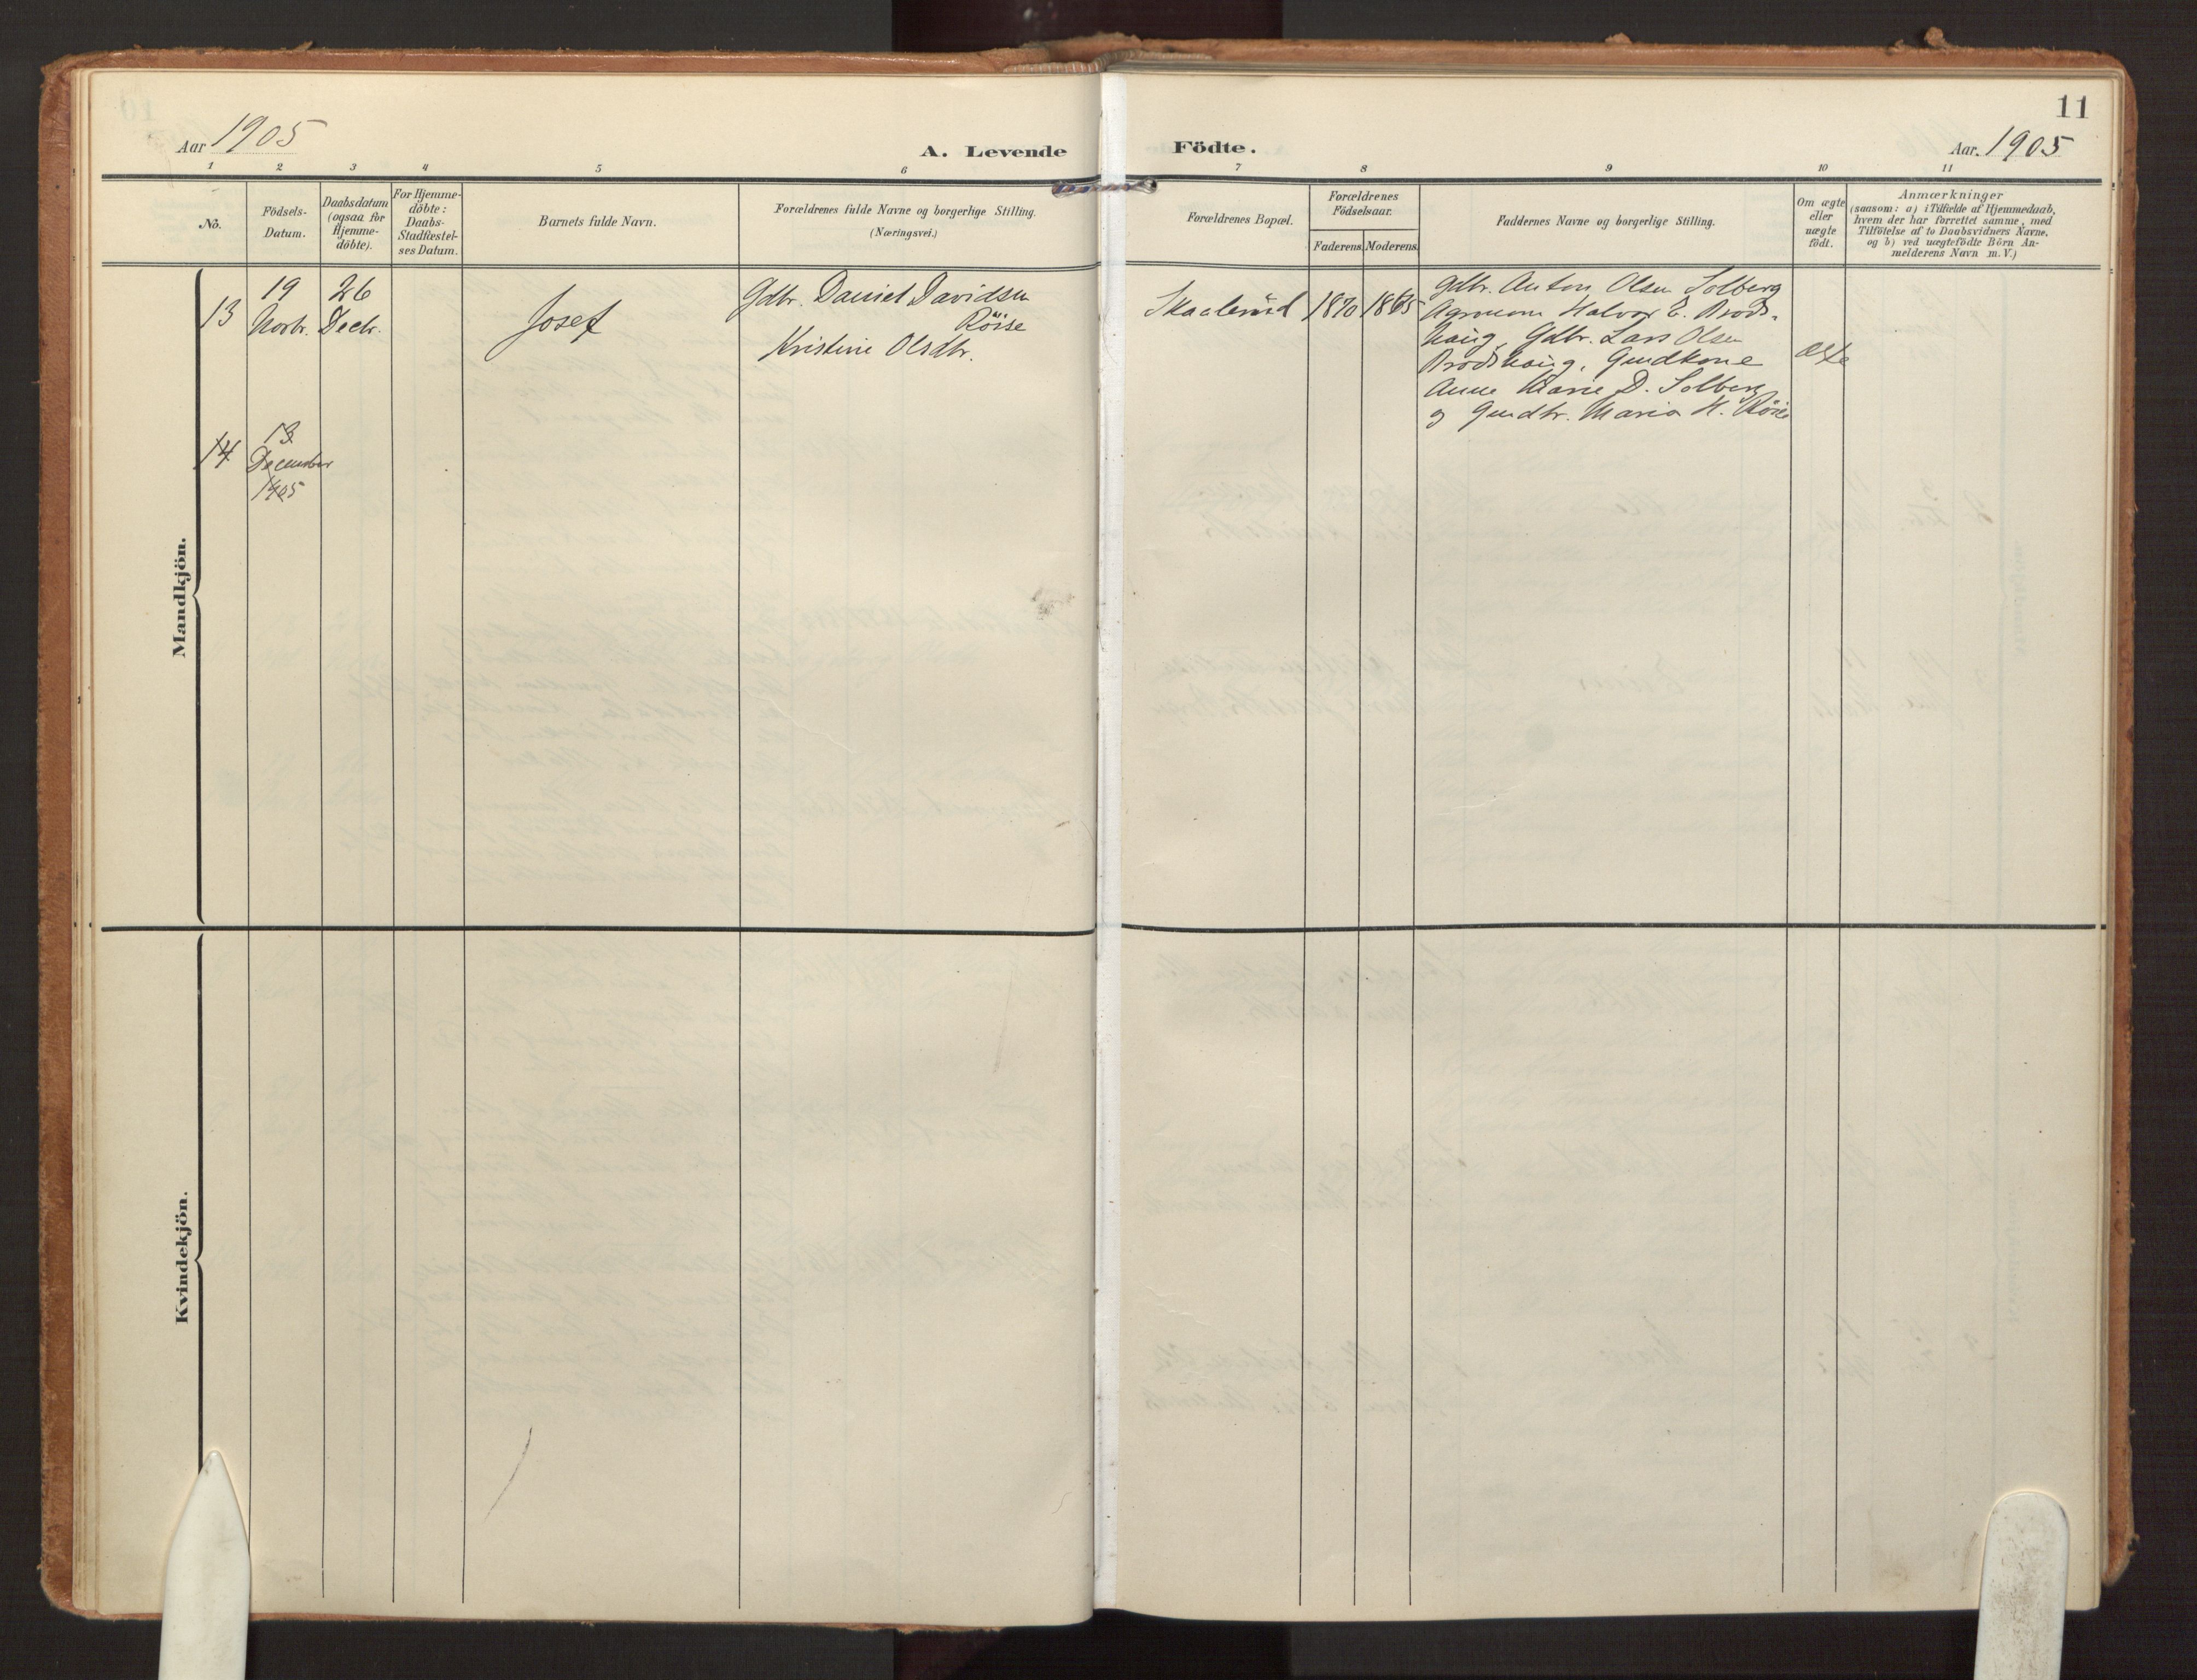 11
Aar 1905
A. Levende Födte.
Aar. 1905
1 2 3 4 5 6 7 8 9 10 11
No.
Födsels-
Datum.
Daabsdatum
(ogsaa for
Hjemme-
döbte).
For Hjemme-
döbte:
Daabs-
Stadfæstel-
ses Datum.
Barnets fulde Navn.
Forældrenes fulde Navne og borgerlige Stilling.
(Næringsvei.)
Forældrenes Bopæl.
Forældrenes
Födselsaar.
Faderens. Moderens.
Faddernes Navne og borgerlige Stilling.
Om ægte
eller
uægte
födt.
Anmærkninger
(saasom: a) i Tilfælde af Hjemmedaab,
hvem der har forrettet samme, med
Tilföielse af to Daabsvidners Navne,
og b) ved uægtefödte Börn An-
melderens Navn m. V.)
Mandkjön.
13
19
Novbr.
26
Decbr.
Josef
Gdbr. Daniel Davidsen
Röise
Kristine Olsdtr.
Skaalerud
1870
1865
Gdbr. Anton Olsen Solberg
Agronom Halvor E. Brods-
haug, Gdbr. Lars Olsen
Brodshaug, Gmdkone
Anne Marie D. Solberg
og Gmdtr. Maria H. Röise
ægte
14
13
December
1905
Kvindekjön.